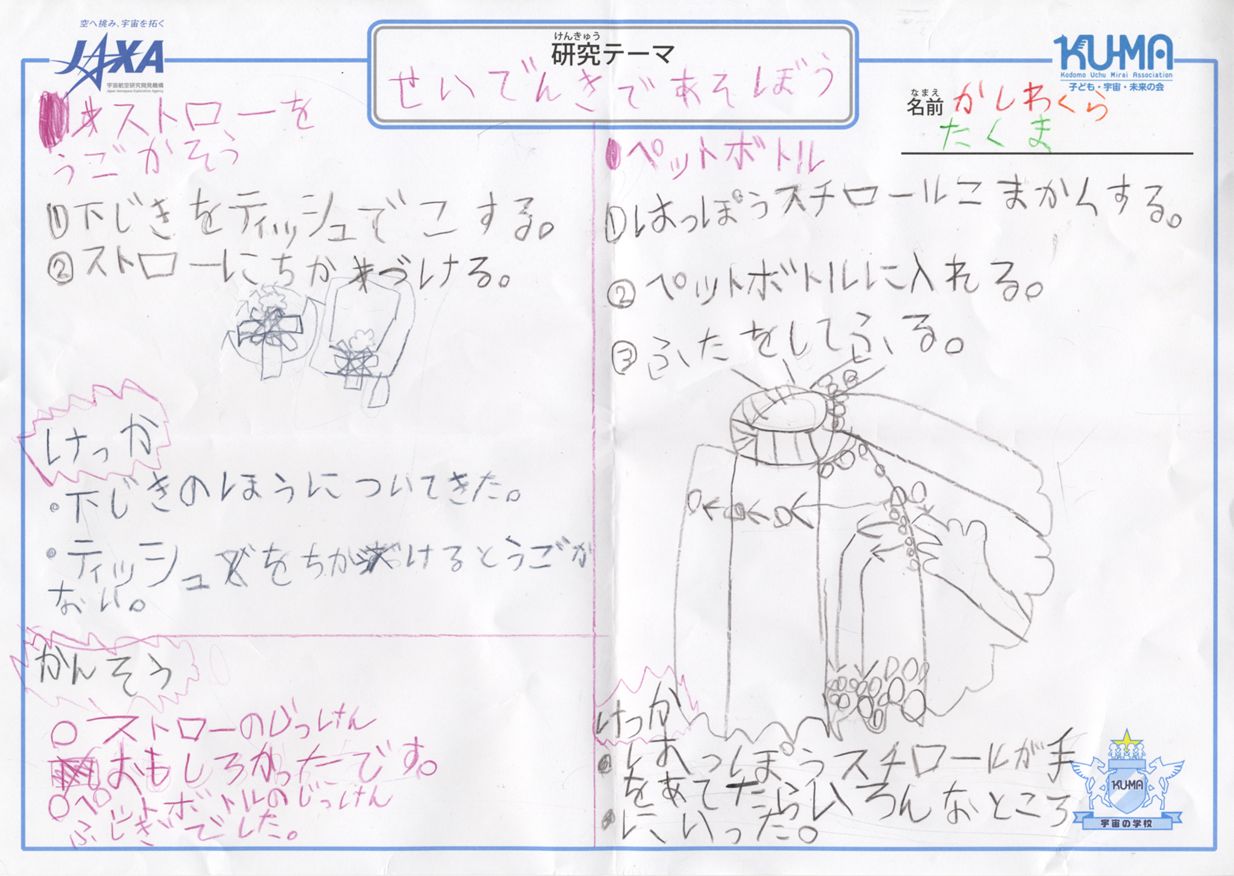 空へ挑み、宇宙を拓く
JAXA
宇宙航空研究開発機構
Japan Aerospace Exploration Agency
けんきゅう
研究テーマ
せいでんきであそぼう
KU-MA
Kodomo Uchu Mirai Association
子ども・宇宙・未来の会
なまえ
名前 かしわくら
たくま
ストローを
うごかそう
①下じきをティッシュでこする。
②ストローにちかづける。
けっか
・下じきのほうについてきた。
・ティッシュをちかづけるとうごか
ない。
かんそう
○ストローのじっけん
おもしろかったです。
○ペットボトルのじっけん
ふしぎでした。
ペットボトル
①はっぽうスチロールこまかくする。
②ペットボトルに入れる。
③ふたをしてふる。
けっか
・はっぽうスチロールが手
をあてたらいろんなところ
に、いった。
KUMA
宇宙の学校